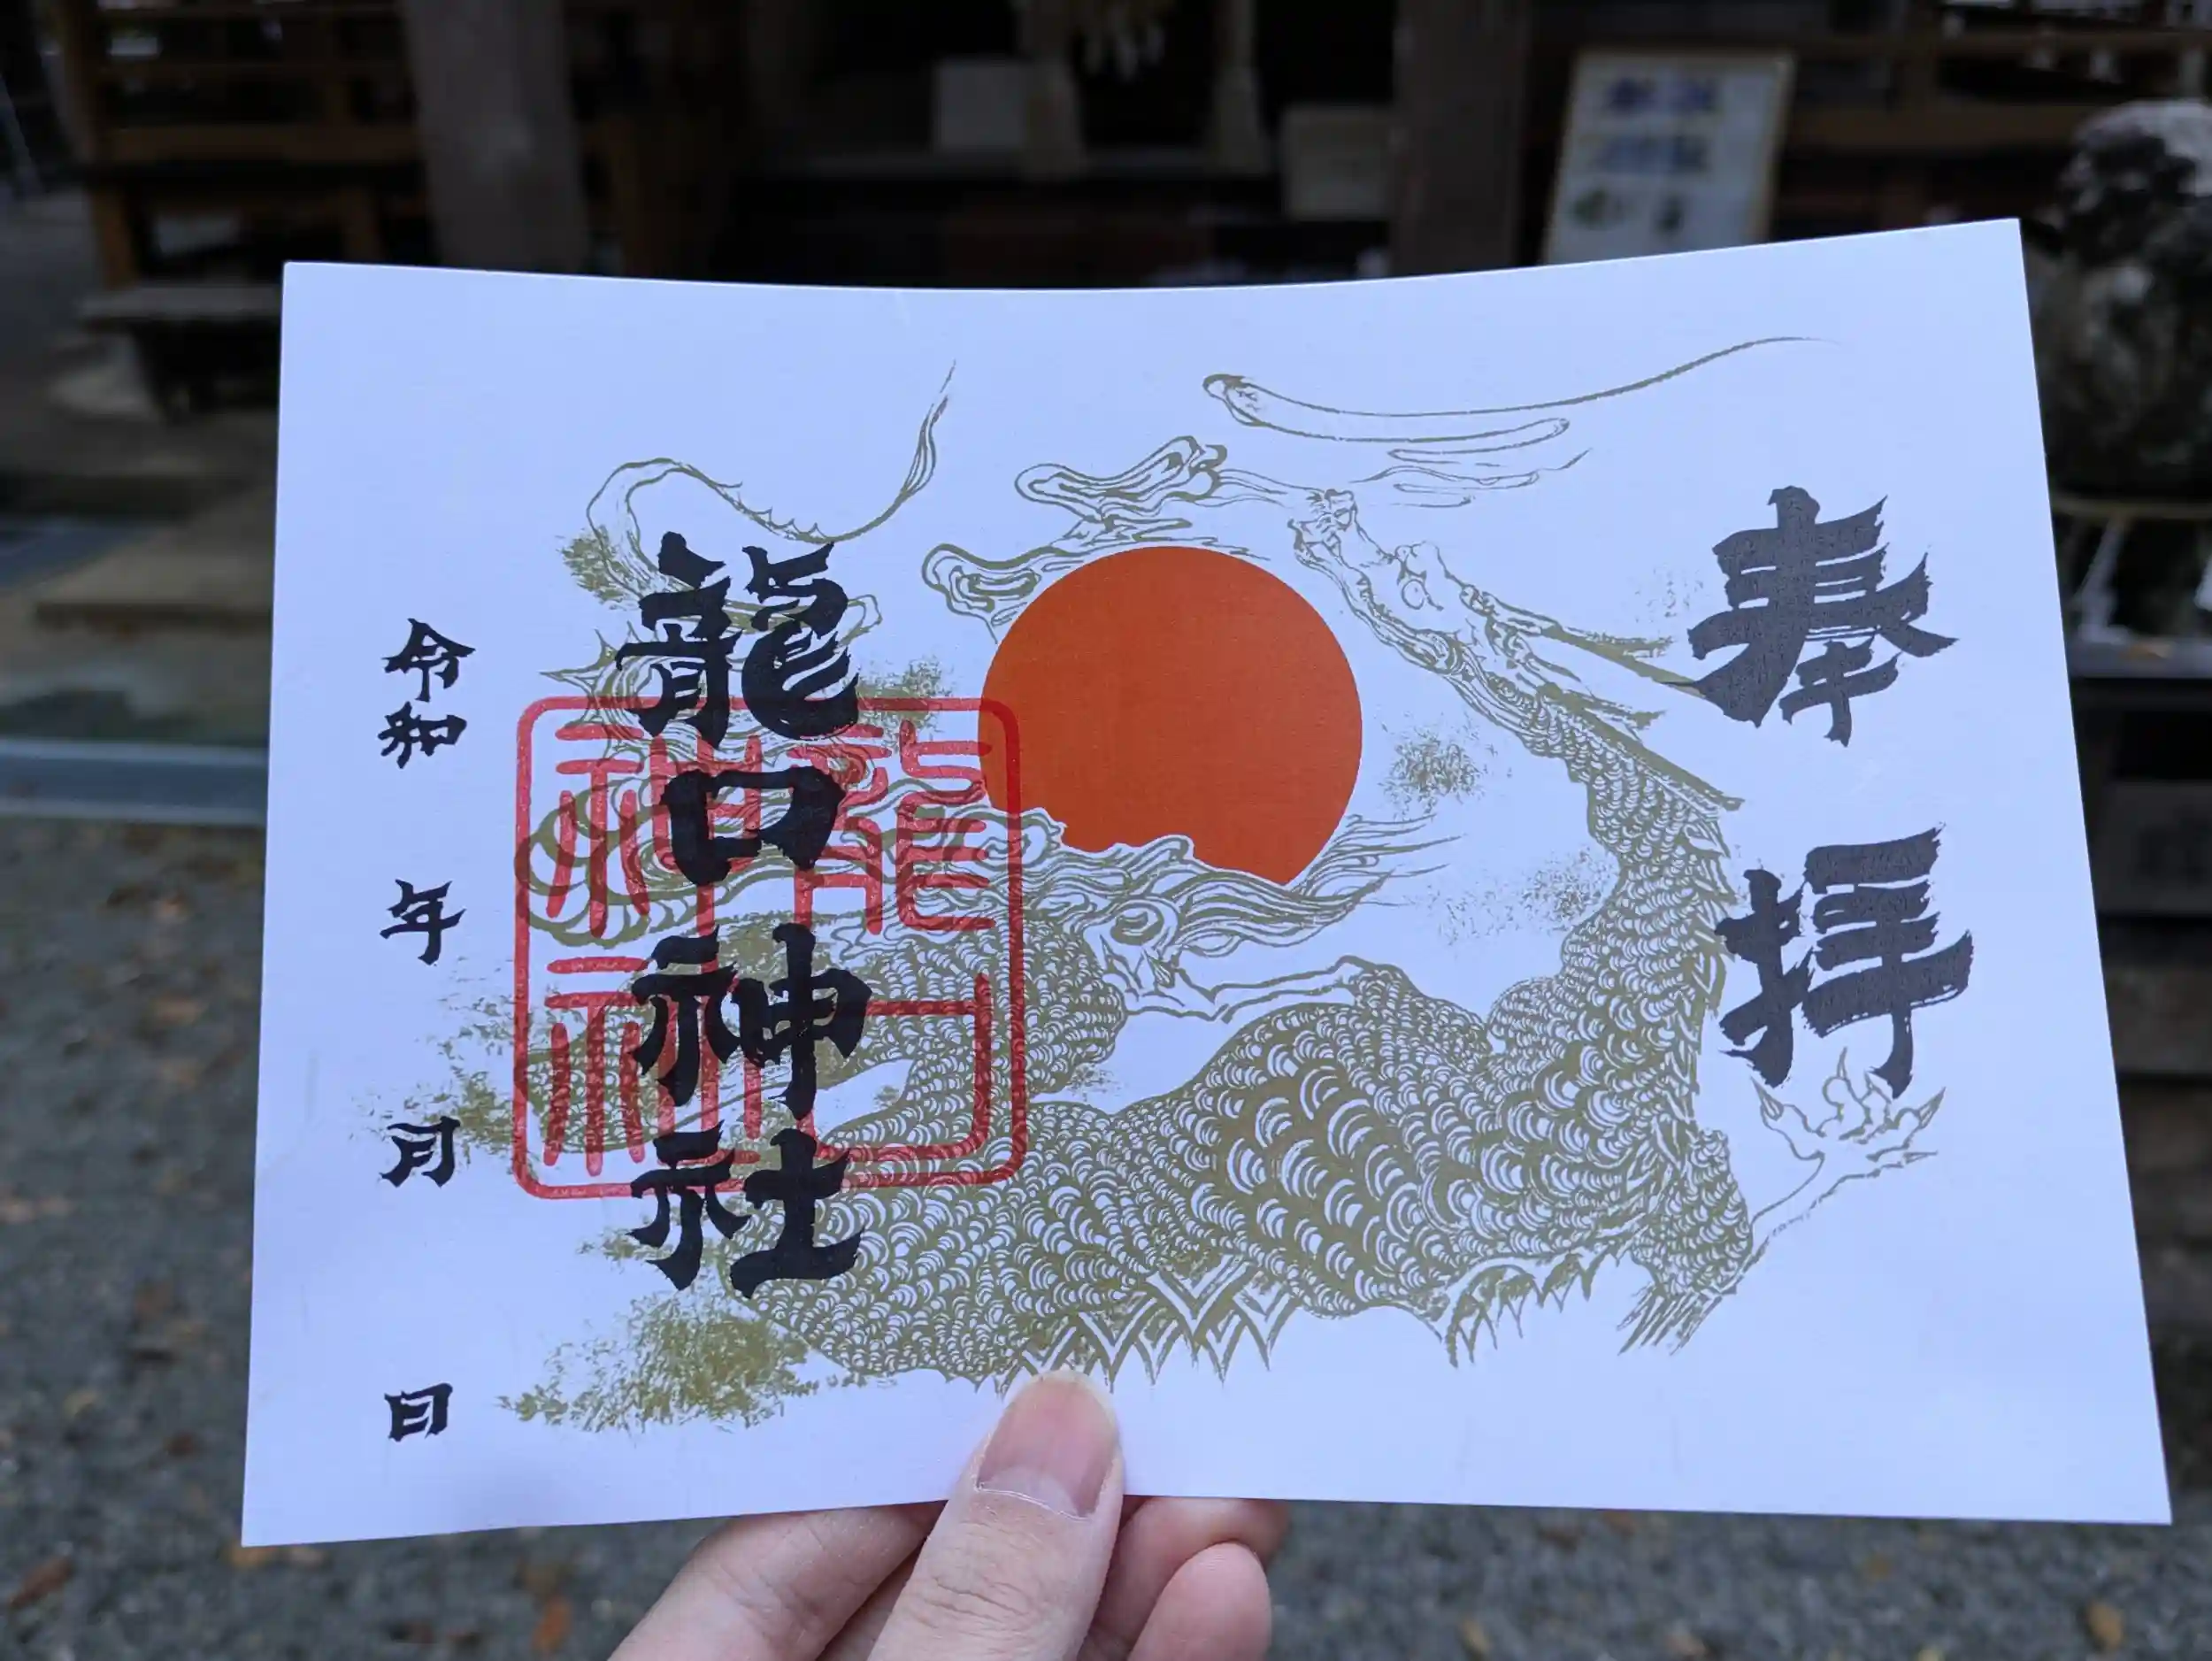 奉拝
龍口神社
龍口神社
令和 年 月 日